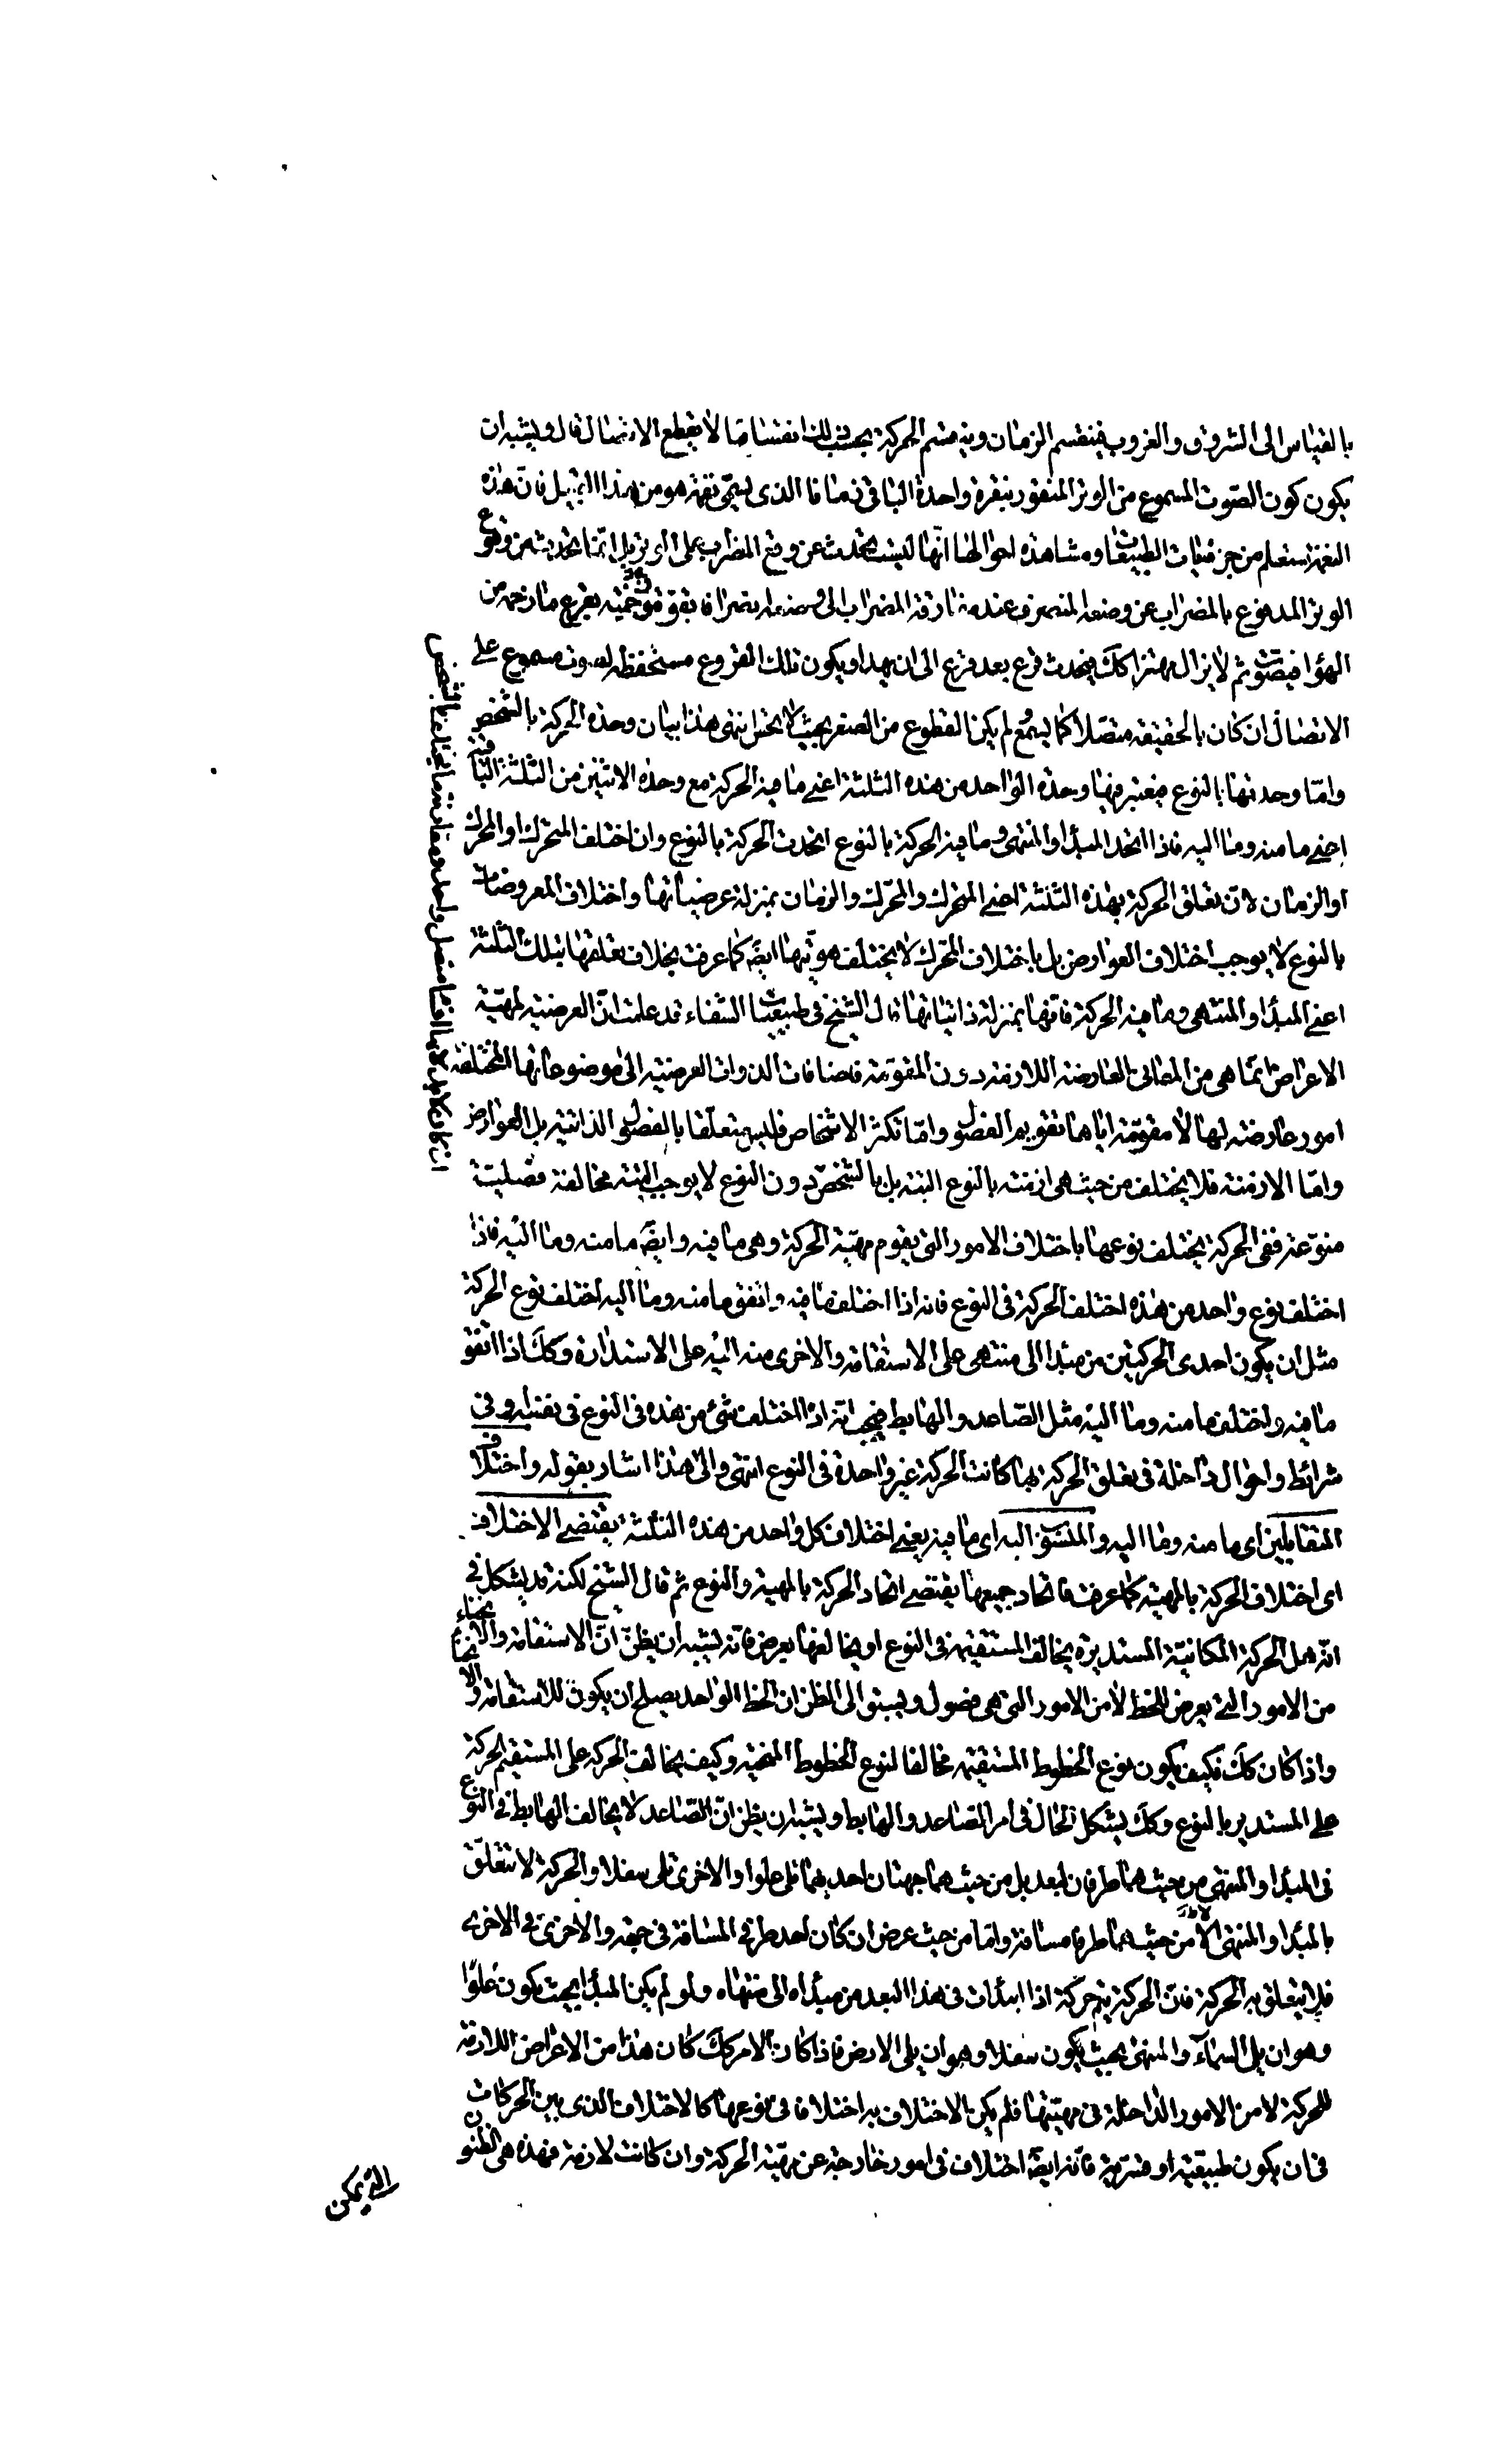 بالقياس الى الشروق والغروب فينقسم الزمان وينقسم الحركة بحسب ذلك انقساما لا يقطع الاتصال قال ويشبه ان
يكون كون الصوت المسموع من الوتر المنقور بنقرة واحدة الباقى زمانا الذى يسمّى نغمة هو من هذا القبيل فانّ هذه
النغمة ستعلم من جزئيات الطبيعيات ومشاهدة احوالها انّها ليست تحدث عن وقع المضراب على الوتر بل انّما تحدث من وقوع
الوتر المدفوع بالمضراب عن وضعه المنصرف عند مفارقة المضراب الى وضعه انصرافا بقوّة وحميّة يقرع ما زحمه من
الهواء فيصوّت ثم لا يزال مهتزا كك فيحدث قرع بعد قرع الى ان يهدأ ويكون ذلك القروع مستحفظة لصوت مسموع على
الاتصال ان كان بالحقيقة متصّلا كما يسمع ولم يكن القطوع من الصغر بحيث لا يحسّ انتهى هذا بيان وحدة الحركة بالشخص
وامّا وحدتها بالنوع فيعتبر فيها وحدة الواحد من هذه الثلثة اعنى ما فيه الحركة مع وحدة الاثنين من الثلثة الباقية
اعنى ما منه وما اليه فاذا اتحد المبدأ والمنتهى وما فيه الحركة بالنوع اتحدت الحركة بالنوع وان اختلف المتحرك او المحرك
او الزمان لانّ تعلق الحركة بهذه الثلثة اعنى المتحرك والمحرّك والزمان بمنزلة عرضياتها واختلاف المعروضات
بالنوع لا يوجب اختلاف العوارض بل باختلاف المحرّك لا يختلف هويّتها ايضا كما عرفت بخلاف تعلقها بتلك الثلثة
اعنى المبدأ والمنتهى وما فيه الحركة فانّها بمنزلة ذاتياتها قال الشيخ فى طبيعيات الشفاء قد علمت انّ العرضية لمهيّة
الاعراض انّما هى من المعانى العارضة اللازمة دون المقوّمة فاضافات الذوات العرضية الى موضوعاتها المختلفة
امور عارضة لها لا مقوّمة اياها تقويم الفصول وامّا تكثر الاشخاص فليس متعلّقا بالفصول الذاتية بل العوارض
وامّا الازمنة فلا يختلف من حيث هى ازمنة بالنوع البتة بل بالشخص دون النوع لا يوجب البتة مخالفة فصليّة
منوّعة ففى الحركة يختلف نوعها باختلاف الامور التى يقوم مهيّة الحركة وهى ما فيه وايضا ما منه وما اليه فاذا
اختلف نوع واحد من هذه اختلف الحركة فى النوع فانه اذا اختلف ما فيه واتفق ما منه وما اليه اختلف نوع الحركة
مثل ان يكون احدى الحركتين من مبدأ الى منتهى على الاستقامة والاخرى منه اليه على الاستدارة وكك اذا اتفق
ما فيه واختلف ما منه وما اليه مثل الصّاعد والهابط فيجب انّه اذا اختلف شئ من هذه فى النوع فى نفسه او فى
شرائط واحوال داخلة فى تعلق الحركة بها كانت الحركة غير واحدة فى النوع انتهى والى هذا اشار بقوله واختلاف
المتقابلين اى ما منه وما اليه والمنسوب اليه اى ما فيه يعنى اختلاف كل واحد من هذه الثلثة يقتضى الاختلاف
اى اختلاف الحركة بالمهيّة كما عرفت فاتحاد جميعها يقتضى اتحاد الحركة بالمهية والنوع ثم قال الشيخ لكنه قد يشكل فى
انّه هل الحركة المكانيّة المستديرة يخالف المستقيمة فى النوع او يخالفها بعرض فانه يشبه ان يظنّ انّ الاستقامة والانحناء
من الامور التى يعرض للخط لا من الامور التى هى فصول ويسبق الى الظن ان الخط الواحد يصلح ان يكون للاستقامة والانحناء
واذا كان كك فكيف يكون نوع الخطوط المستقيمة مخالفا لنوع الخطوط المنحنية وكيف يخالف الحركة على المستقيم الحركة
على المستدير بالنوع وكك يشكل الحال فى امر الصاعد والهابط ويشبه ان يظن انّ الصّاعد لا يخالف الهابط فى النوع
فى المبدأ والمنتهى من حيث هما طرفان لبعد بل من حيث هما جهتان احديهما تلى علوا والاخرى تلى سفلا والحركة لا تتعلّق
بالمبدأ والمنتهى الا من حيث هما طرفا مسافة وامّا من حيث عرض ان كان احد طرفى المسافة فى جهة والاخرى فى الاخرى
فلا يتعلق به الحركة فانّ الحركة يتم حركة اذا ابتدأت فى هذا البعد من مبدأه الى منتهاه ولو لم يكن المبدأ بحيث يكون علوّا
وهو ان يلى السماء والمنتهى بحيث يكون سفلا وهو ان يلى الارض فاذا كان الامر كك كان هذا من الاعراض اللازمة
للحركة لا من الامور الداخلة فى مهيّتها فلم يكن الاختلاف به اختلافا فى نوعها كالاختلاف الذى بين الحركات
فى ان يكون طبيعية او قسرية فانه ايضا اختلاف فى امور خارجة عن مهيّة الحركة وان كانت لازمة فهذه هى الظنون
التى يمكن